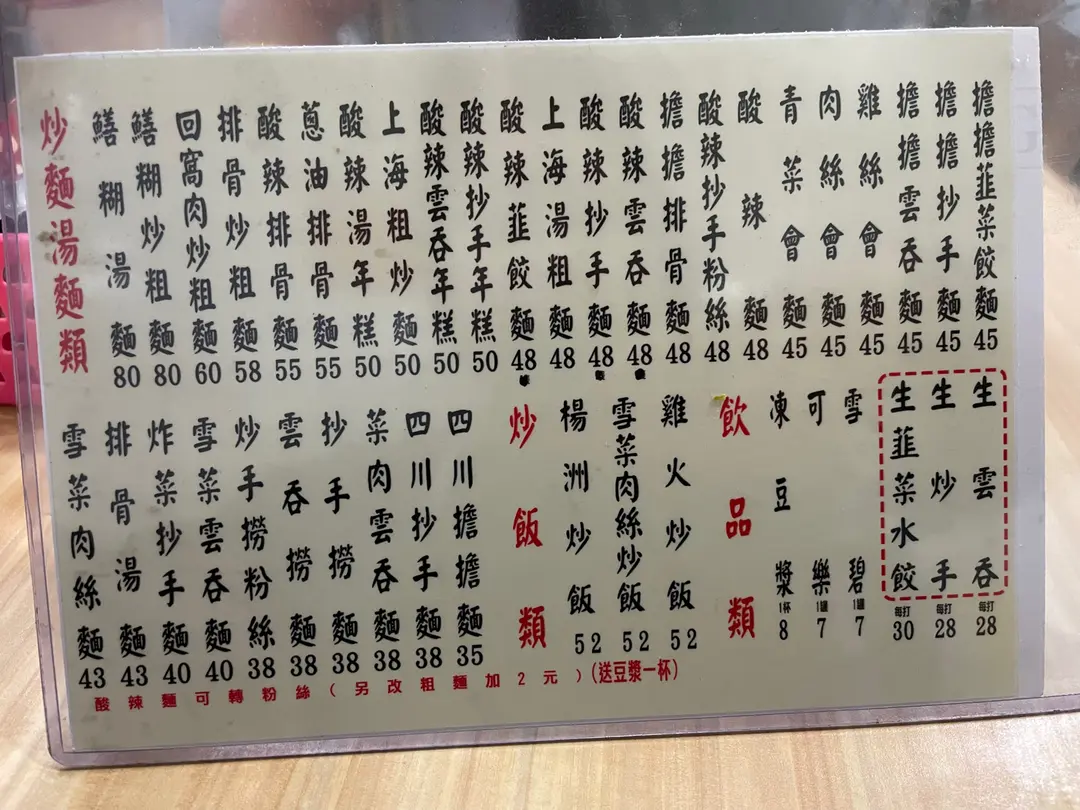 炒麵湯麵類
鱔糊湯麵 80
鱔糊炒粗麵 80
回窩肉炒粗麵 60
排骨炒粗麵 58
酸辣排骨麵 55
蔥油排骨麵 55
酸辣湯年糕 50
上海粗炒麵 50
酸辣雲吞年糕 50
酸辣抄手年糕 50
酸辣韮餃麵 48
上海湯粗麵 48
酸辣抄手麵 48
酸辣雲吞麵 48
擔擔排骨麵 48
酸辣抄手粉絲 48
酸辣麵 48
青菜會麵 45
肉絲會麵 45
雞絲會麵 45
擔擔雲吞麵 45
擔擔抄手麵 45
擔擔韮菜餃麵 45
雪菜肉絲麵 43
排骨湯麵 43
炸菜抄手麵 40
雪菜雲吞麵 40
炒手撈粉絲 38
雲吞撈麵 38
抄手撈麵 38
菜肉雲吞麵 38
四川抄手麵 38
四川擔擔麵 35
炒飯類
楊洲炒飯 52
雪菜肉絲炒飯 52
雞火炒飯 52
飲品類
凍豆漿 1杯 8
可樂 1罐 7
雪碧 1罐 7
生韮菜水餃 每打 30
生炒手 每打 28
生雲吞 每打 28
酸辣麵可轉粉絲(另改粗麵加2元)(送豆漿一杯)